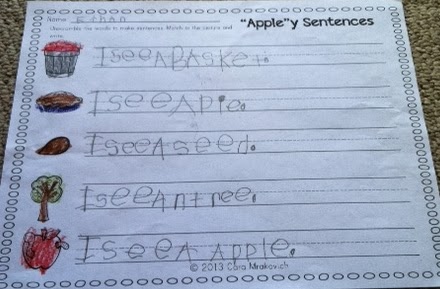 Name Ethan
"Apple"y Sentences
Unscramble the words to make sentences. Match to the picture and
write.
I see A BASket.
I see A Pie.
I see A seed.
I see A n tree.
I see A APPle.
© 2013 Cara Mrakovich